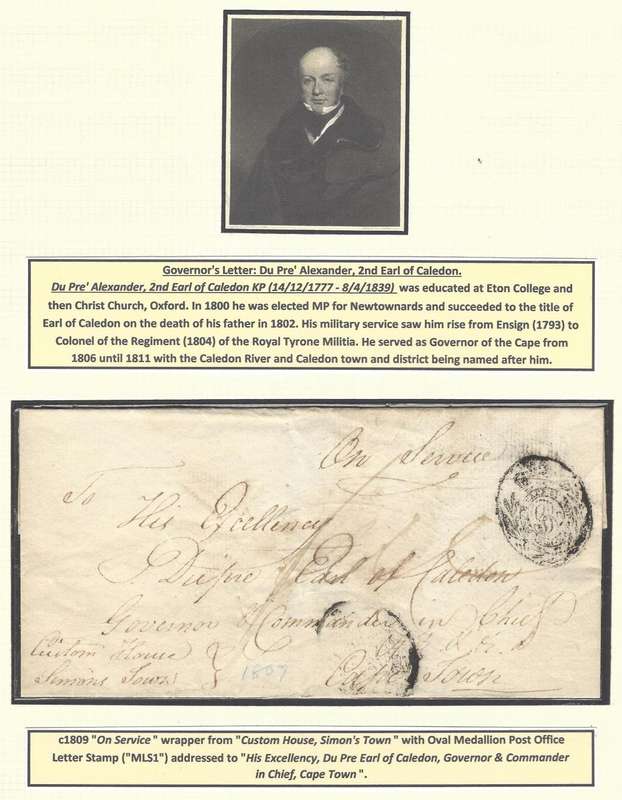 Governor's Letter: Du Pre' Alexander, 2nd Earl of Caledon.
Du Pre' Alexander, 2nd Earl of Caledon KP (14/12/1777 - 8/4/1839) was educated at Eton College and
then Christ Church, Oxford. In 1800 he was elected MP for Newtownards and succeeded to the title of
Earl of Caledon on the death of his father in 1802. His military service saw him rise from Ensign (1793) to
Colonel of the Regiment (1804) of the Royal Tyrone Militia. He served as Governor of the Cape from
1806 until 1811 with the Caledon River and Caledon town and district being named after him.
On Service
To
His Excellency
Dupre Earl of Caledon
Governor & Commander in Chief
&c &c &c
Custom House
Simons Town
1807
Cape Town
c1809 "On Service" wrapper from "Custom House, Simon's Town" with Oval Medallion Post Office
Letter Stamp ("MLS1") addressed to "His Excellency, Du Pre Earl of Caledon, Governor & Commander
in Chief, Cape Town".